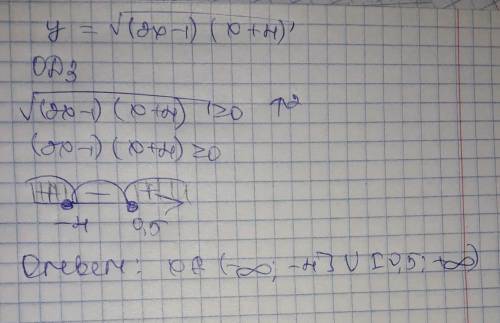 y = √(2x-1)(x+4)
ОДЗ
√(2x-1)(x+4) ≥0 ↑2
(2x-1)(x+4) ≥0
+ − +
-4 0,5
Ответ: x∈ (-∞; -4] ∪ [0,5; +∞)